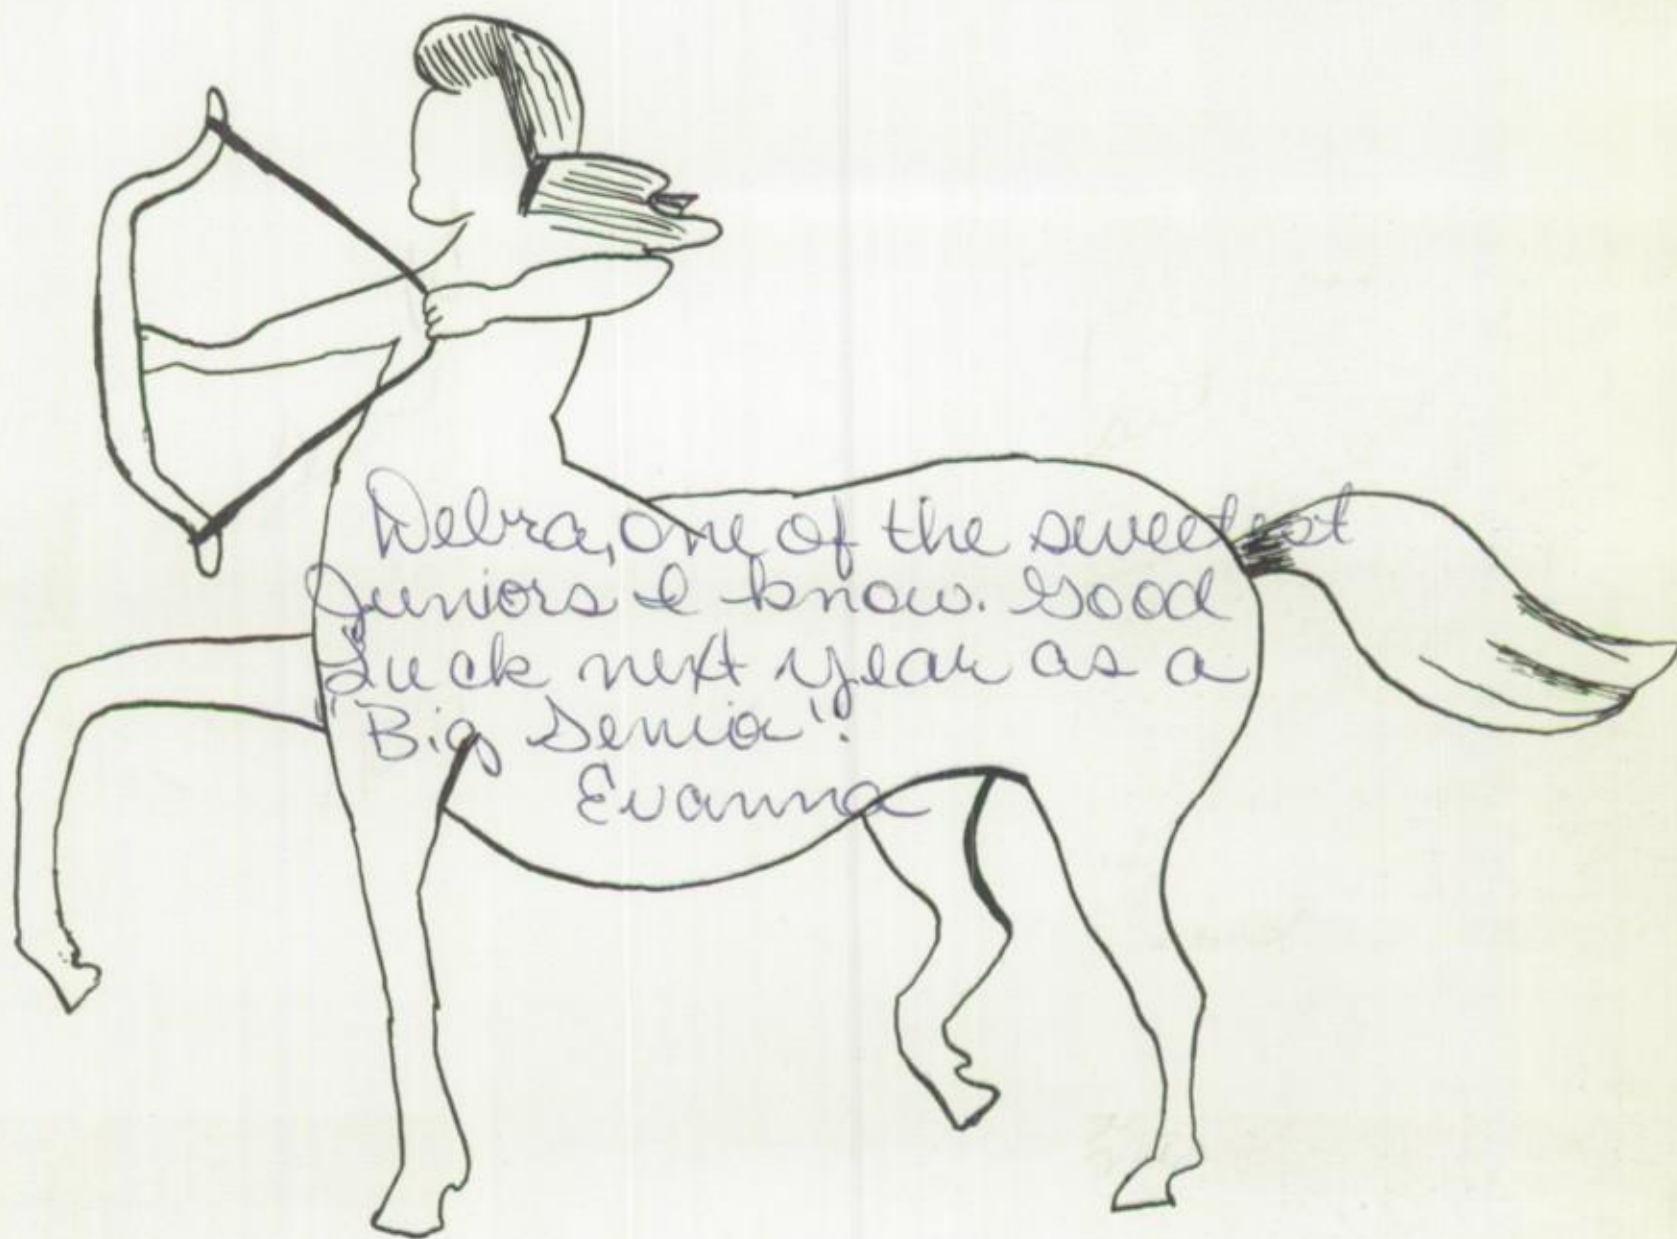 Debra, one of the sweetest
Juniors I know. Good
Luck next year as a
"Big Senior"!
Evanna